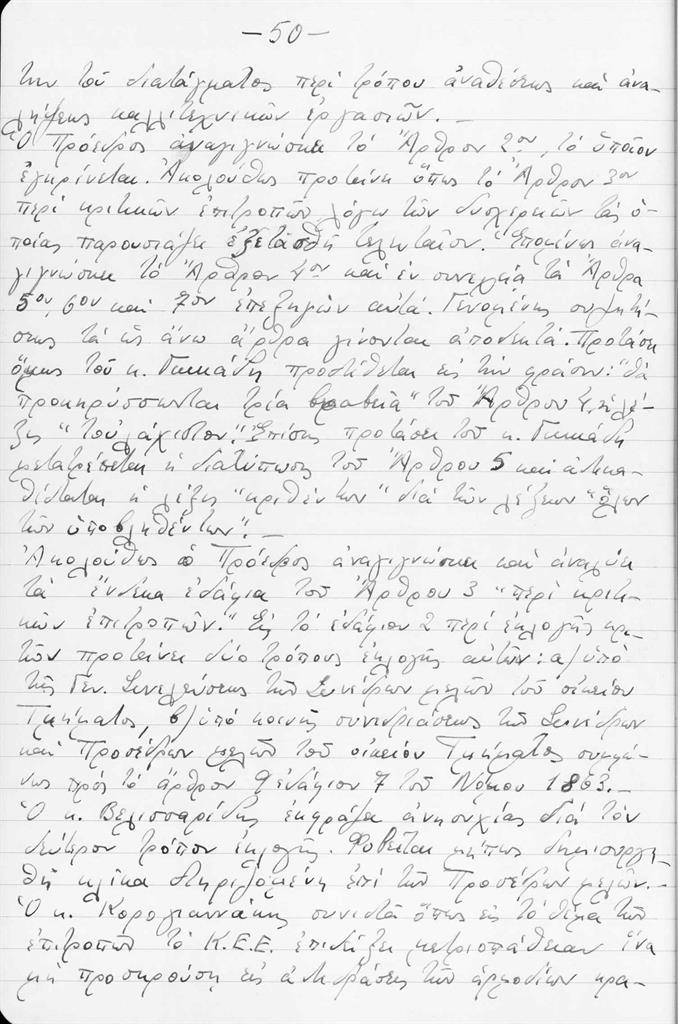 -50-
την τοῦ διατάγματος περί τρόπου ἀναθέσεως καί ἀνα-
λήψεως καλλιτεχνικῶν ἐργασιῶν. -
Ὁ Πρόεδρος ἀναγιγνώσκει τό Ἄρθρον 2ον, τό ὁποῖον
ἐγκρίνεται. Ἀκολούθως προτείνει ὅπως τό Ἄρθρον 3ον
περί κριτικῶν ἐπιτροπῶν λόγω τῶν δυσχερειῶν τάς ὁ-
ποίας παρουσιάζει ἐξετασθῆ τελευταῖον. Ἑπομένως ἀνα-
γιγνώσκει τό Ἄρθρον 4ον καί ἐν συνεχεία τά Ἄρθρα
5ον, 6ον καί 7ον ἐπεξηγῶν αὐτά. Γενομένης συζητή-
σεως τά ὡς ἄνω ἄρθρα γίνονται ἀποδεκτά. Προτάσει
ὅμως τοῦ κ. προστίθεται εἰς τήν φράσιν: "θά
προκηρύσσωνται τρία βραβεῖα" τοῦ Ἄρθρου 4, ἡ λέ-
ξις "τοὐλάχιστον". Ἐπίσης προτάσει τοῦ κ.
μετατρέπεται ἡ διατύπωσις τοῦ Ἄρθρου 5 καί ἀντικα-
θίσταται ἡ λέξις "κριθέντων" διά τῶν λέξεων "ὅλων
τῶν ὑποβληθέντων". -
Ἀκολούθως ὁ Πρόεδρος ἀναγιγνώσκει καί ἀναλύει
τά ἕνδεκα ἐδάφια τοῦ Ἄρθρου 3 "περί κριτι-
κῶν ἐπιτροπῶν." Εἰς τό ἐδάφιον 2 περί ἐκλογῆς κρι-
τῶν προτείνει δύο τρόπους ἐκλογῆς αὐτῶν: α/ ὑπό
τῆς Γεν. Συνελεύσεως τῶν Συνέδρων μελῶν τοῦ οἰκείου
Τμήματος, β/ ὑπό κοινῆς συνεδριάσεως τῶν Συνέδρων
καί Προσέδρων μελῶν τοῦ οἰκείου Τμήματος συμφώ-
νως πρός τό ἄρθρον 9 ἐδάφιον 7 τοῦ Νόμου 1863. -
Ὁ κ. Βελισσαρίδης ἐκφράζει ἀνησυχίας διά τόν
δεύτερον τρόπον ἐκλογῆς. Φοβεῖται μήπως δημιουργη-
θῆ κλίκα στηριζομένη ἐπί τῶν Προσέδρων μελῶν. -
Ὁ κ. Κορογιαννάκης συνιστᾶ ὅπως εἰς τό θέμα τῶν
ἐπιτροπῶν τό Κ.Ε.Ε. ἐπιδείξει μετριοπάθειαν ἵνα
μή προσκρούση εἰς ἀντιδράσεις τῶν ἁρμοδίων κρα-